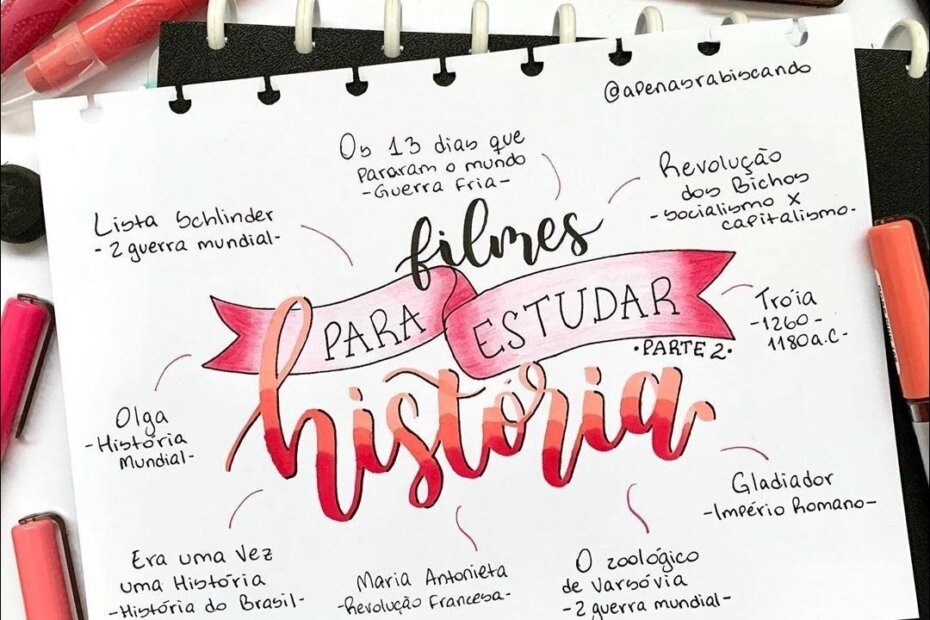 @apenasrabiscando
Os 13 dias que
pararam o mundo
-Guerra Fria-
Revolução
dos Bichos
-socialismo x
capitalismo-
Lista Schlinder
-2 guerra mundial-
filmes
PARA ESTUDAR
•PARTE 2•
história
Tróia
-1260-
1180a.C-
Olga
-História
Mundial-
Gladiador
-Império Romano-
Era uma vez
uma História
-História do Brasil-
Maria Antonieta
-Revolução Francesa-
O zoológico
de Varsóvia
-2 guerra mundial-